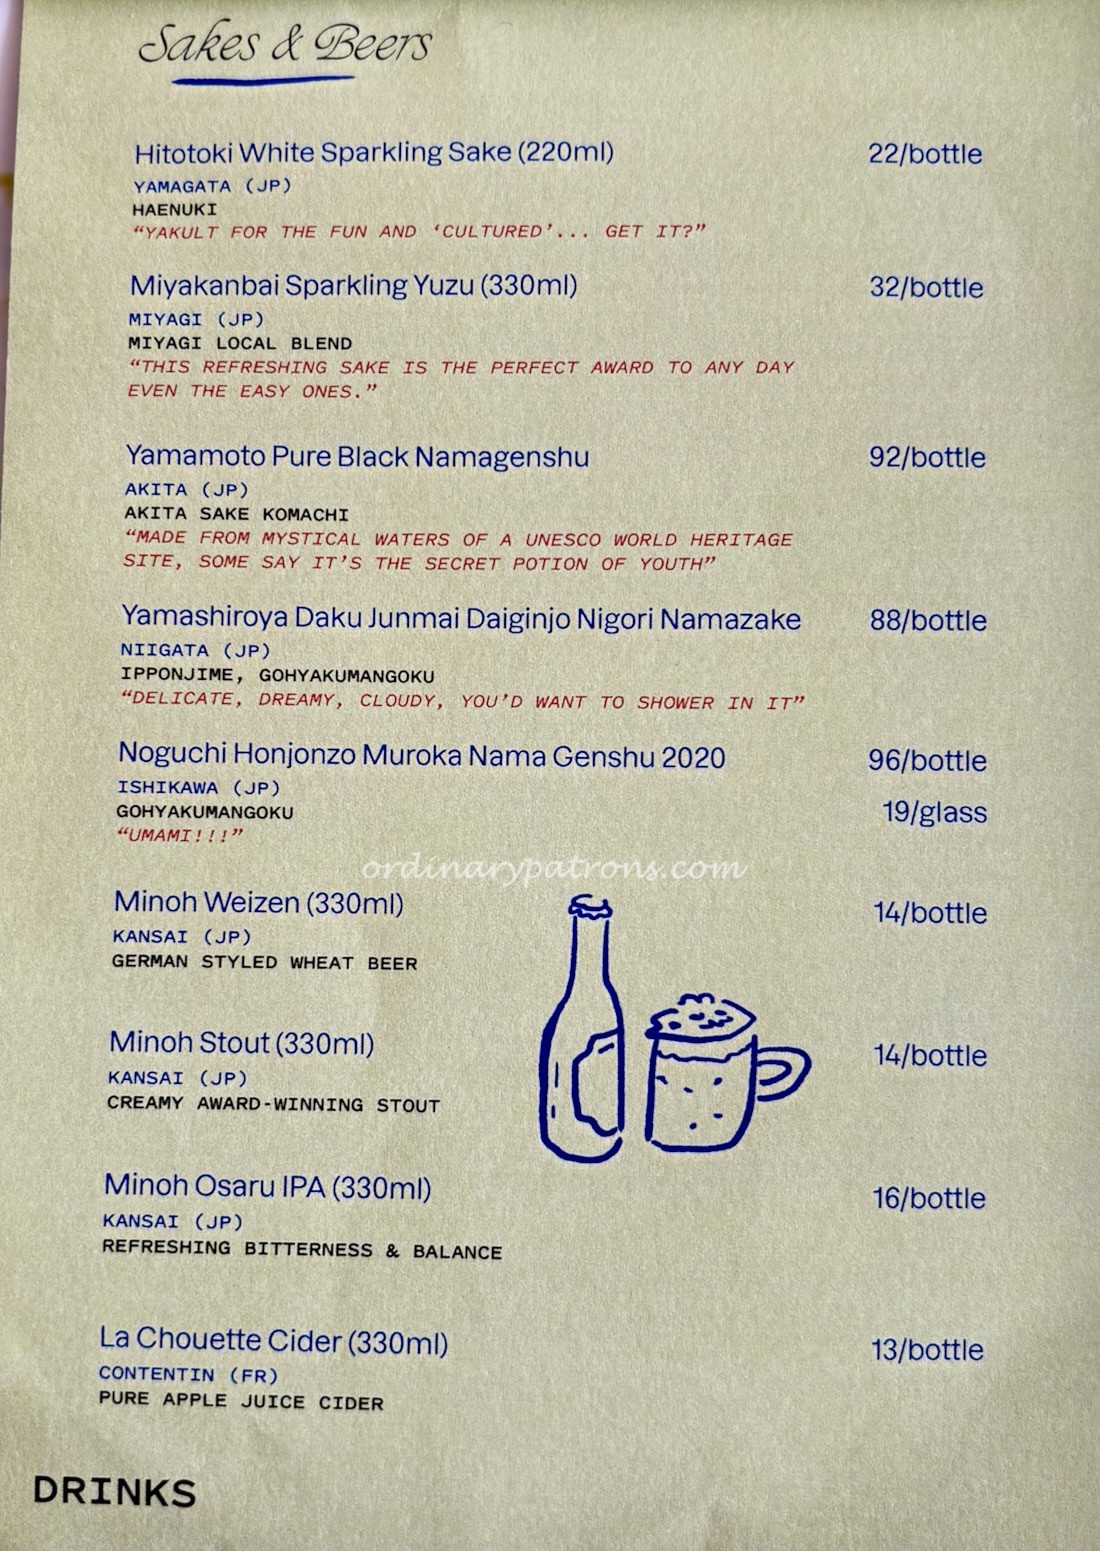 Sakes & Beers
Hitotoki White Sparkling Sake (220ml) 22/bottle
YAMAGATA (JP)
HAENUKI
“YAKULT FOR THE FUN AND ‘CULTURED’... GET IT?”
Miyakanbai Sparkling Yuzu (330ml) 32/bottle
MIYAGI (JP)
MIYAGI LOCAL BLEND
“THIS REFRESHING SAKE IS THE PERFECT AWARD TO ANY DAY
EVEN THE EASY ONES.”
Yamamoto Pure Black Namagenshu 92/bottle
AKITA (JP)
AKITA SAKE KOMACHI
“MADE FROM MYSTICAL WATERS OF A UNESCO WORLD HERITAGE
SITE, SOME SAY IT’S THE SECRET POTION OF YOUTH”
Yamashiroya Daku Junmai Daiginjo Nigori Namazake 88/bottle
NIIGATA (JP)
IPPONJIME, GOHYAKUMANGOKU
“DELICATE, DREAMY, CLOUDY, YOU’D WANT TO SHOWER IN IT”
Noguchi Honjonzo Muroka Nama Genshu 2020 96/bottle
ISHIKAWA (JP)
GOHYAKUMANGOKU 19/glass
“UMAMI!!!”
ordinarypatrons.com
Minoh Weizen (330ml) 14/bottle
KANSAI (JP)
GERMAN STYLED WHEAT BEER
Minoh Stout (330ml) 14/bottle
KANSAI (JP)
CREAMY AWARD-WINNING STOUT
Minoh Osaru IPA (330ml) 16/bottle
KANSAI (JP)
REFRESHING BITTERNESS & BALANCE
La Chouette Cider (330ml) 13/bottle
CONTENTIN (FR)
PURE APPLE JUICE CIDER
DRINKS